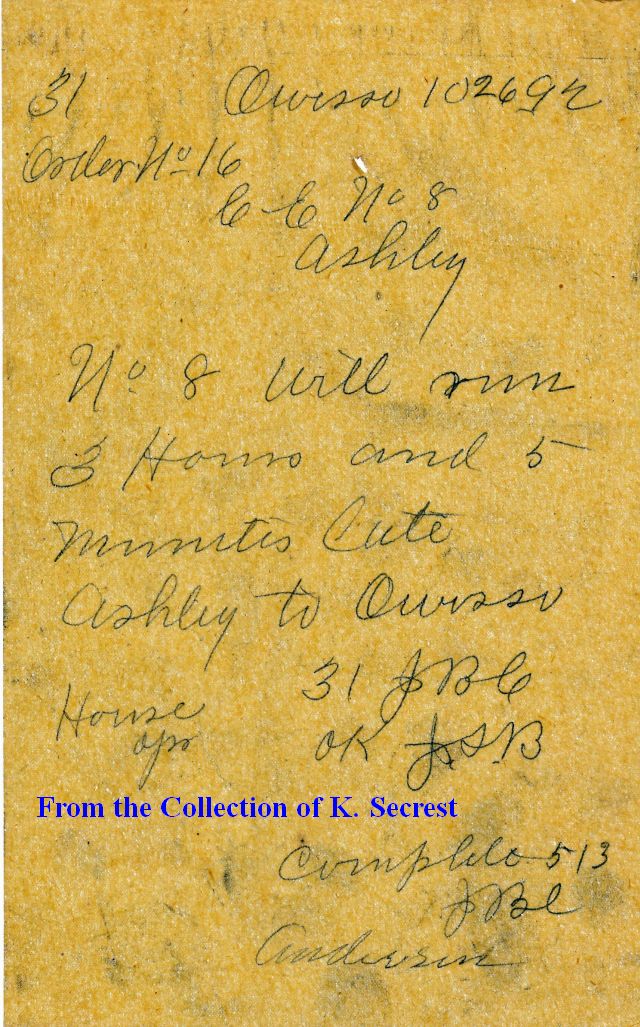 31 Owosso 102692
Order No 16
C & E No 8
Ashley
No 8 will run
3 Hours and 5
Minutes Late
Ashley to Owosso
31 JBC
House
opr
OK J.S.B
From the Collection of K. Secrest
Complete 513
JBC
Anderson